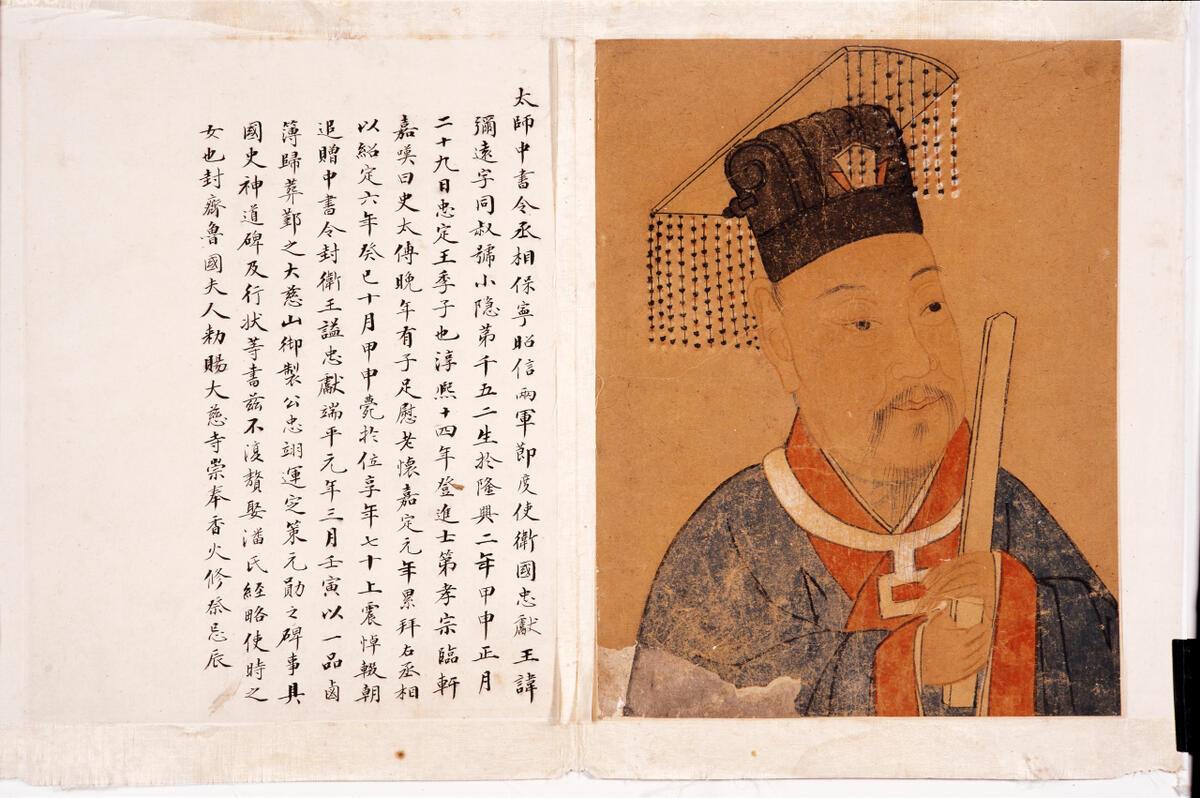 太師中書令丞相保寧昭信兩軍節度使衛國忠獻王諱
彌遠字同叔號小隐第千五二生於隆興二年甲申正月
二十九日忠定王季子也淳熙十四年登進士第孝宗臨軒
嘉嘆曰史太傅晚年有子足慰老懷嘉定元年累拜右丞相
以紹定六年癸巳十月甲申薨於位享年七十上震悼輟朝
追贈中書令封衛王諡忠獻端平元年三月壬寅以一品鹵
簿歸葬鄞之大慈山御製公忠翊運定策元勛之碑事具
國史神道碑及行狀等書茲不復贅娶潘氏經略使時之
女也封齊魯國夫人勅賜大慈寺崇奉香火修祭忌辰